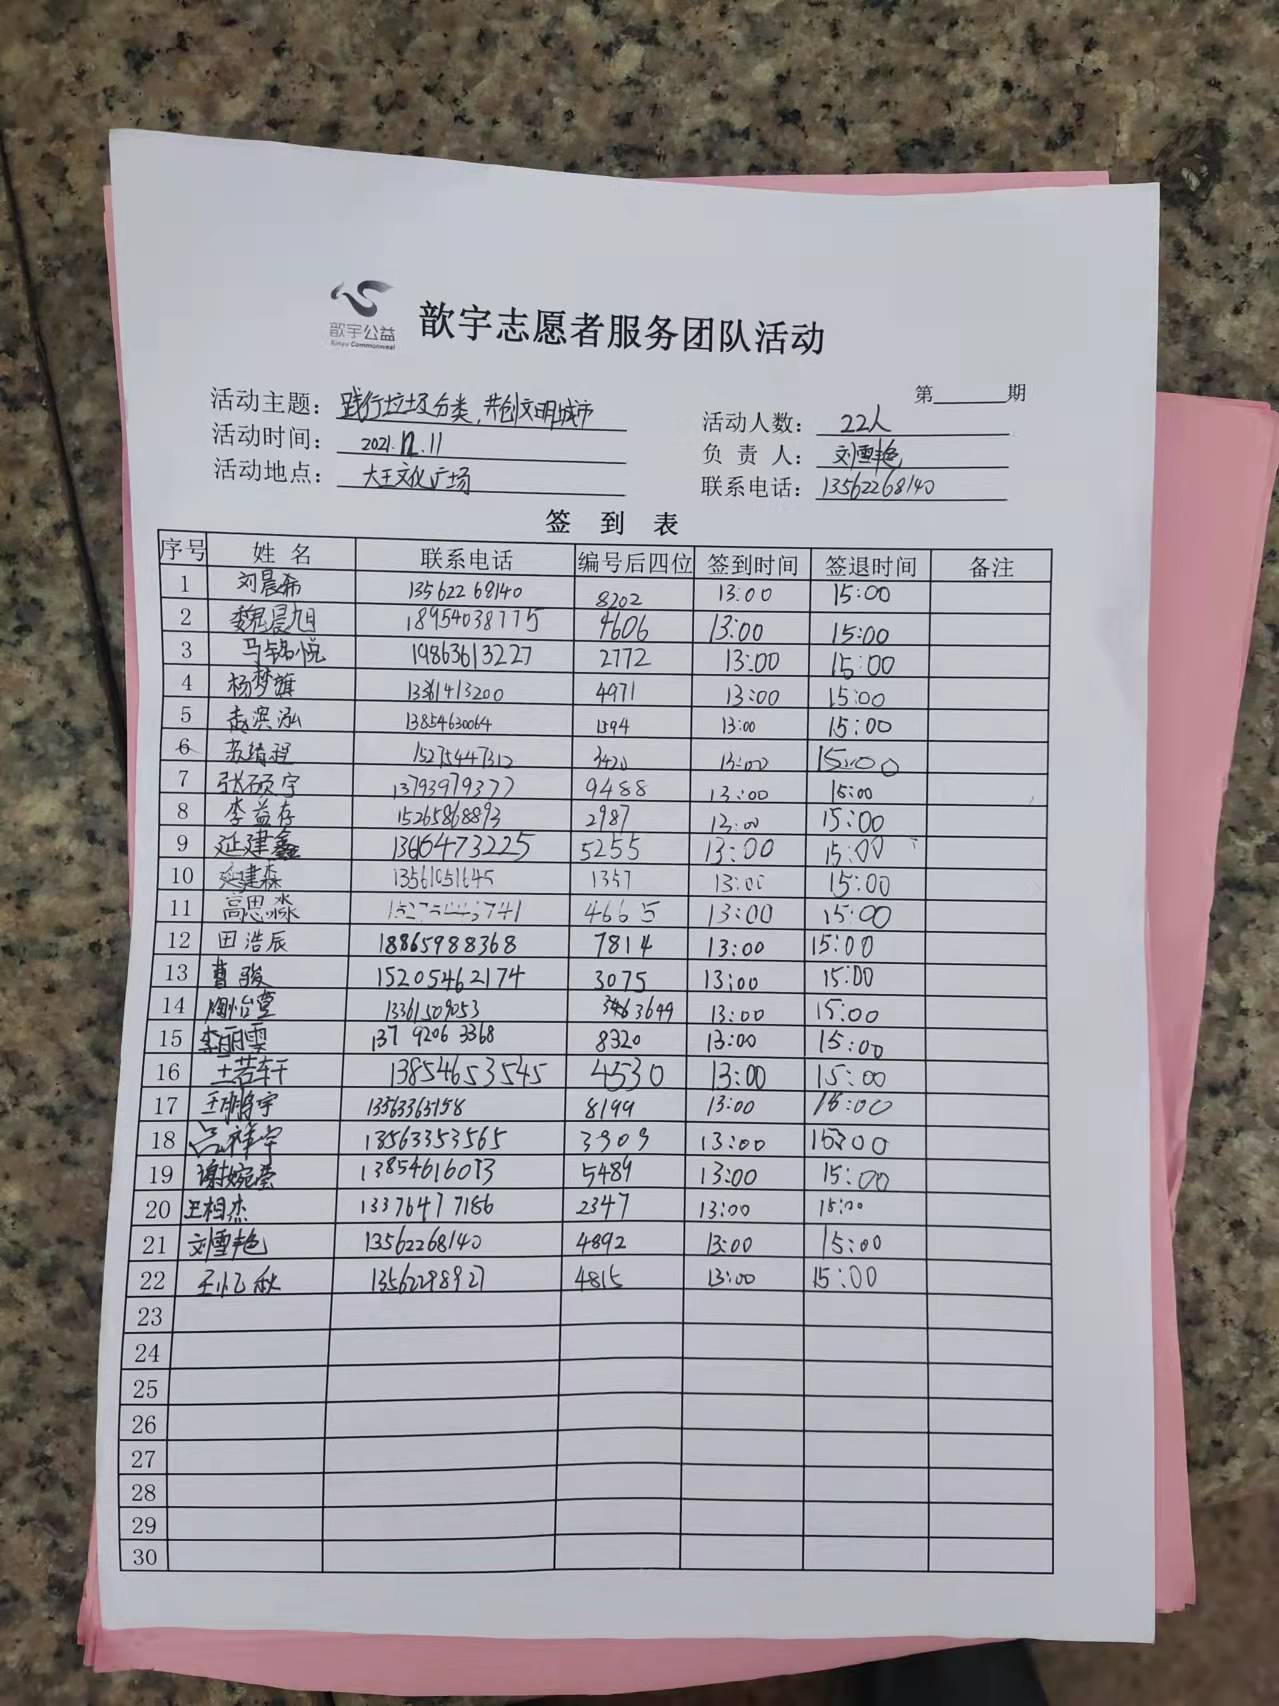 歆宇公益
Xinyu Commonweal
歆宇志愿者服务团队活动
第 期
活动主题：践行垃圾分类，共创文明城市
活动人数：22人
活动时间：2021.12.11
负责人：刘雪艳
活动地点：大王文化广场
联系电话：13562268140
签到表
序号 姓名 联系电话 编号后四位 签到时间 签退时间 备注
1 刘晨希 13562268140 8202 13:00 15:00
2 魏晨旭 18954038775 4606 13:00 15:00
3 马铭悦 19863613227 2772 13:00 15:00
4 杨梦旗 13361413200 4971 13:00 15:00
5 赵滨泓 13854630064 1594 13:00 15:00
6 苏绮程 15275447312 3420 13:00 15:00
7 张硕宇 13793979377 9488 13:00 15:00
8 李益存 15265868893 2987 13:00 15:00
9 延建鑫 13616473225 5255 13:00 15:00
10 延建森 13561051645 1357 13:00 15:00
11 高思淼 4665 13:00 15:00
12 田浩辰 18865988368 7814 13:00 15:00
13 曹骏 15205462174 3075 13:00 15:00
14 陶怡萱 13361509053 3644 13:00 15:00
15 李丽雯 137 9206 3368 8320 13:00 15:00
16 王若轩 13854653545 4530 13:00 15:00
17 王鹏宇 13563365158 8199 13:00 15:00
18 吕祥宇 13563353565 3909 13:00 15:00
19 谢婉莹 13854616073 5489 13:00 15:00
20 王相杰 13376477186 2347 13:00 15:00
21 刘雪艳 13562268140 4892 13:00 15:00
22 王忆秋 13562298927 4815 13:00 15:00
23
24
25
26
27
28
29
30